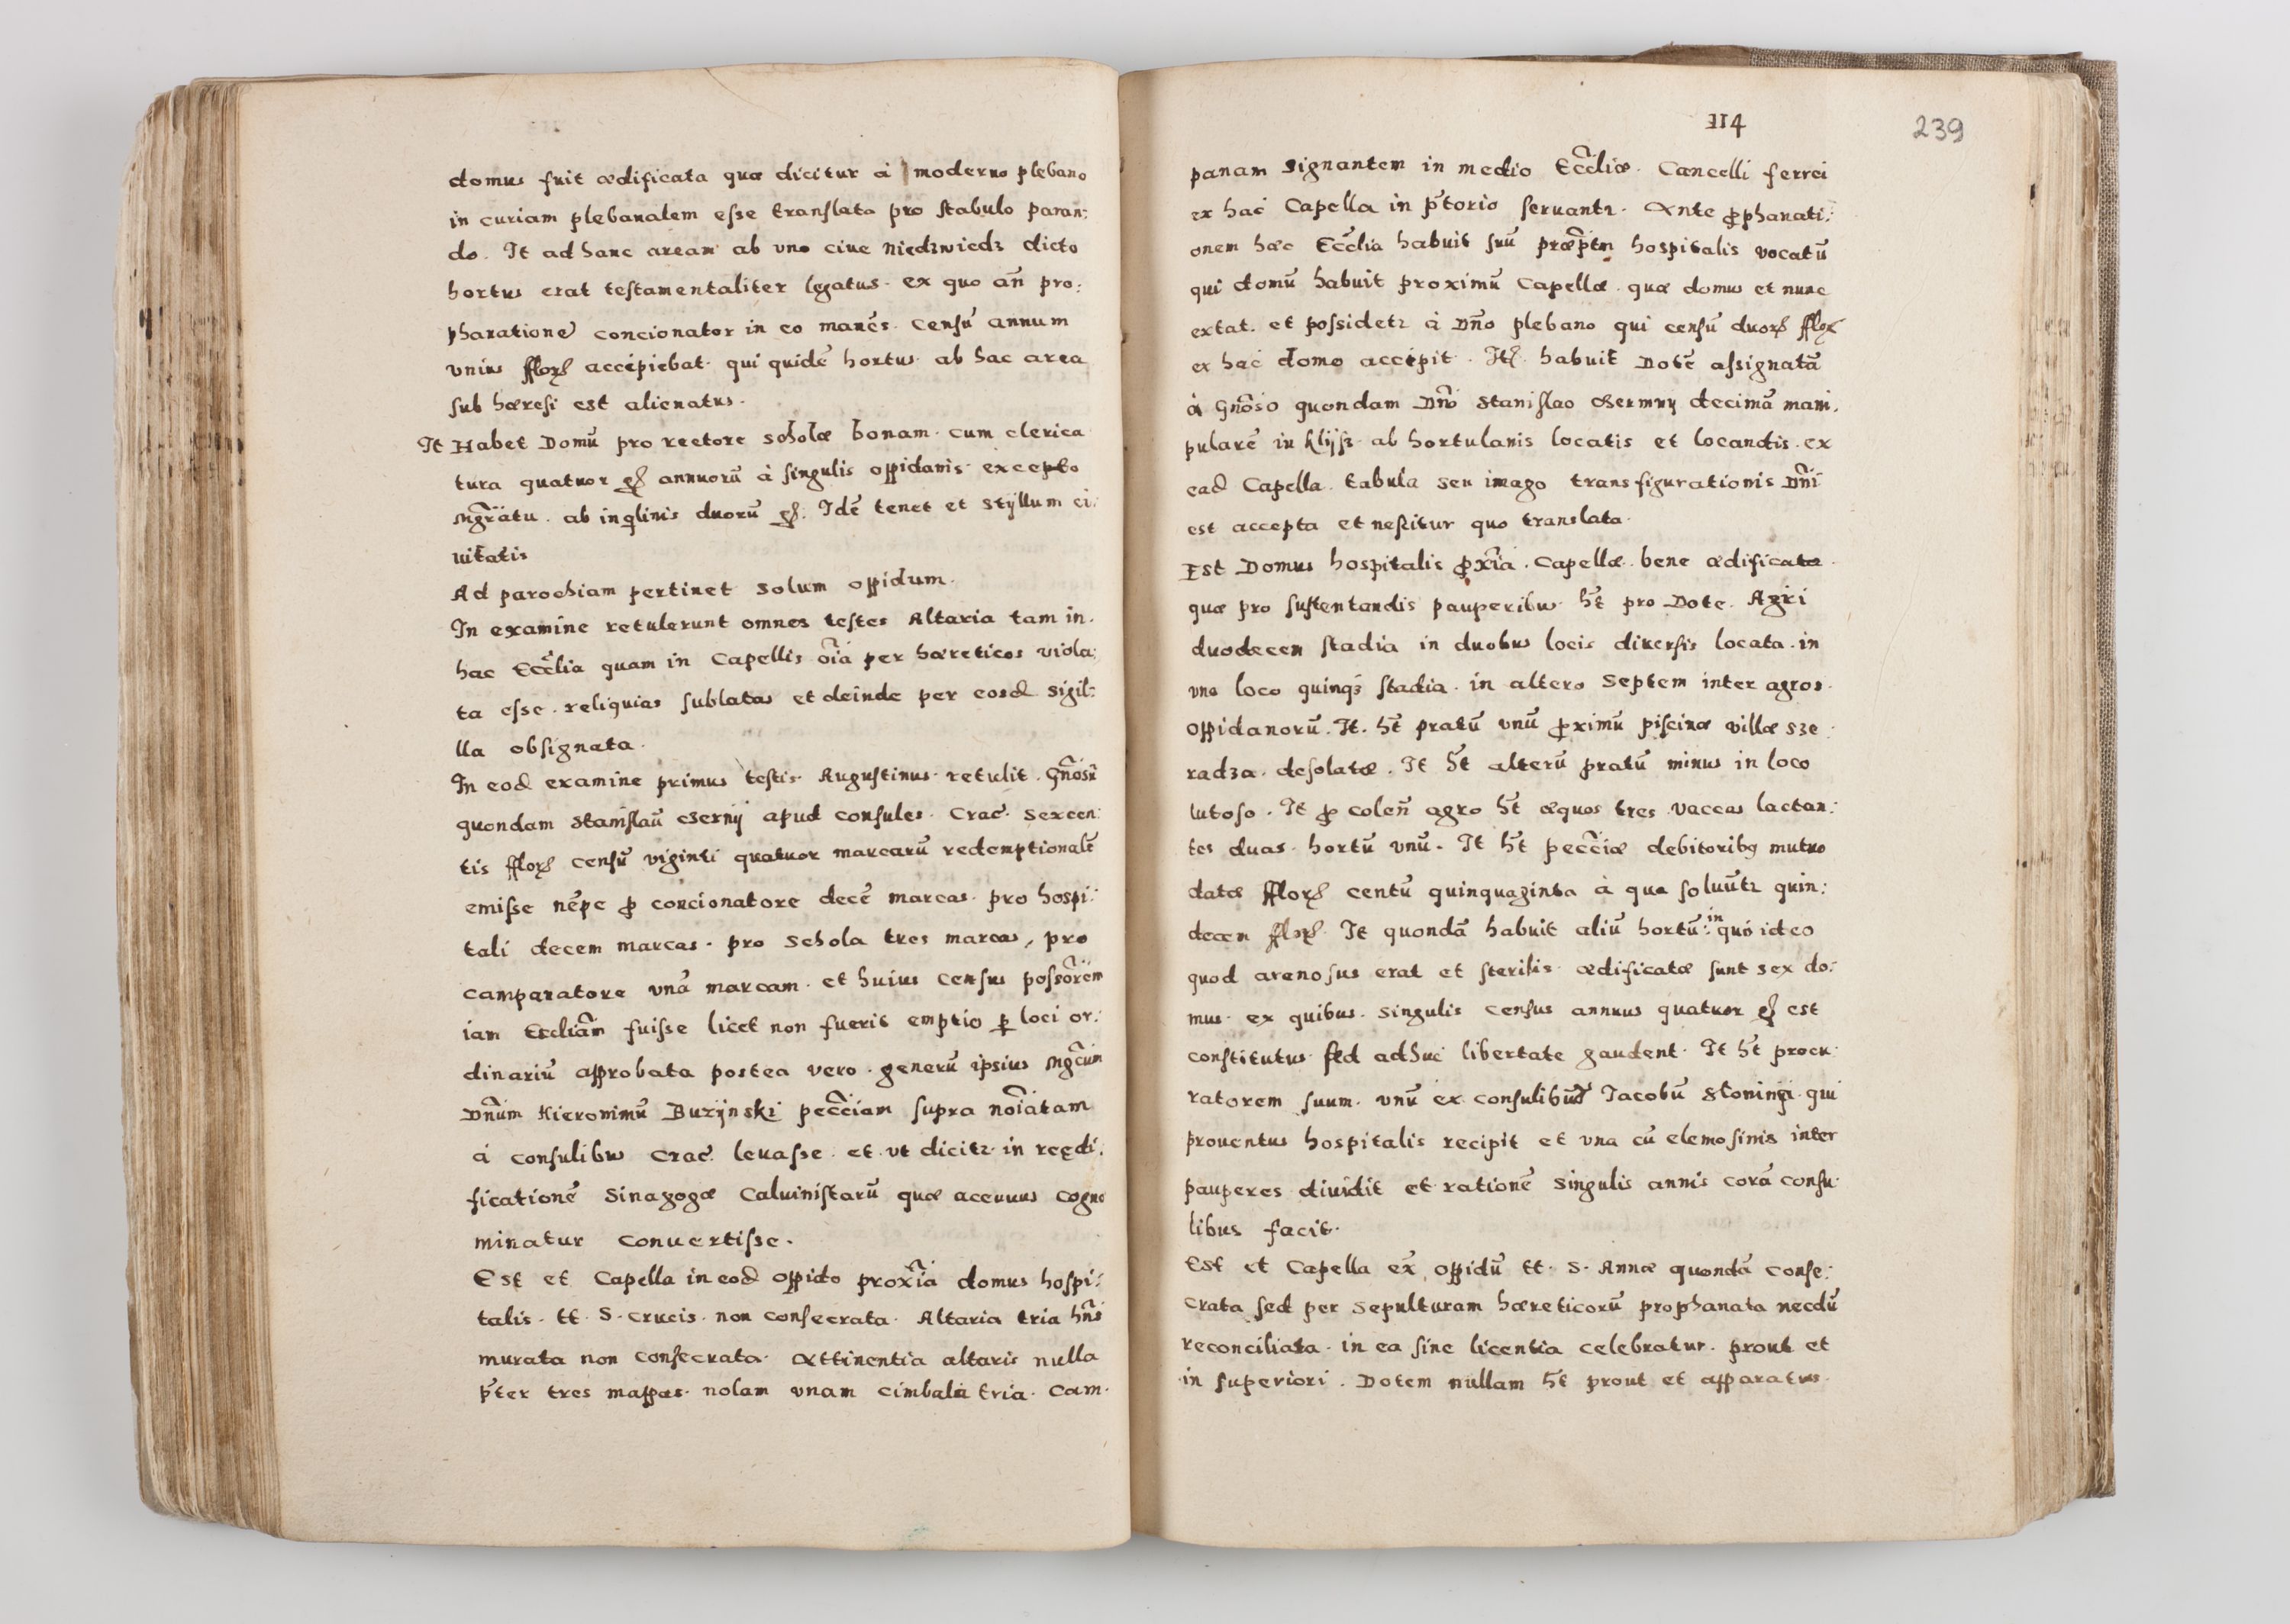 domus fuit ædificata quæ dicitur à moderno plebano
in curiam plebanalem eſse tranſlata pro ſtabulo paran:
do. It ad hanc aream ab vno ciue Niedzwiedz dicto
hortus erat teſtamentaliter legatus. ex quo an̄ pro:
phanationē concionator in eo manēs. censū annum
vnius fflor accipiebat. qui quidē hortus. ab hac area
ſub hæreſi est alienatus.
It Habet Domū pro rectore scholæ bonam. cum clerica
tura quatuor gꝭ annuorū à ſingulis oppidanis. excepto
Mgr̄atu. ab inqlinis duorū gꝭ. Idē tenet et Styllum ci:
uitatis
Ad parochiam pertinet solum oppidum.
In examine retulerunt omnes teſtes Altaria tam in.
hac Ecc̄lia quam in Capellis oīa per hæreticos viola:
ta eſse. reliquias ſublatas et deinde per eosd sigil:
lla obſignata.
In eod examine primus teſtis. Auguſtinus. retulit. Gn̄osū
quondam Staniſlaū Czernij apud conſules. Crac. sexcen:
tis fflor censū viginti quatuor marcarū redemptionalē
emiſse nēpe ꝓ concionatore decē marcas. pro hoſpi:
tali decem marcas. pro Schola tres marcas, pro
camparatore vnā marcam. et huius census poſsōrem
iam Eccliām fuiſse licet non fuerit emptio ꝑ loci or:
dinariū approbata postea vero. generū ipsius Mgc̄um
Dn̄um Hieronimū Buzÿnski pecc̄iam ſupra noīatam
à conſulibus Crac. leuaſse. et vt dicitꝛ in reędi:
ficationē Sinagogæ Caluiniſtarū quæ aceruus cogno
minatur conuertiſse.
Est et Capella in eod oppido proxīa domus hoſpi:
talis. tt. S. Crucis. non conſecrata. Altaria tria hn̄s
murata non conſecrata. Attinentia altaris nulla
p̄ter tres mappas. nolam vnam cimbala tria. Cam.
114
239
panam signantem in medio Ecc̄liæ. Cancelli ferrei
ex hac Capella in p̄torio ſeruantꝛ. Ante ꝓphanati:
onem hæc Ecc̄lia habuit ſuū præp̄tm hospitalis vocatū
qui domū habuit proximū Capellæ. quæ domus et nunc
extat. et poſsidetꝛ à Dn̄o plebano qui cenſū duorꝭ fflor
ex hac domo accipit. Itꝭ. habuit Dotē aſsignatā
à Gn̄oso quondam Dn̄o Staniſlao Czermny decimā mani.
pularē in Klijſz. ab hortulanis locatis et locandis. ex
ead Capella. tabula seu imago transfigurationis Dn̄i
est accepta et neſcitur quo translata.
Est Domus hospitalis ꝓxīa. Capellæ. bene ædificata.
quæ pro ſuſtentandis pauperibus. h̄t pro Dote. Agri
duodecem ſtadia in duobus locis diuerſis locata. in
vno loco quinqȝ ſtadia. in altero Septem inter agros.
Oppidanorū. It. h̄t pratū vnū ꝓximū piſcinæ villæ Sze:
radza. deſolatæ. It h̄t alterū pratū minus in loco
lutoſo. It ꝓ colen̄ agro h̄t æquos tres vaccas lactan:
tes duas. hortū vnū. It h̄t pecc̄iæ debitoribꝫ mutuo
datæ fflorꝭ centū quinquaginta à qua ſoluūtꝛ quin:
decem fflorꝭ. It quondā habuit aliū hortū: in quo ideo
quod arenoſus erat et ſterilis. ædificatæ ſunt sex do:
mus. ex quibus. singulis census annuus quatuor gꝭ est
conſtitutus. ſed adhuc libertate gaudent. It h̄t procu:
ratorem ſuum. vnū ex conſulibus Iacobū Stoningi. qui
prouentus hospitalis recipit et vna cū elemoſinis inter
pauperes diuidit et rationē singulis annis corā conſu.
libus facit.
Est et Capella ex̄ oppidū tt. S. Annæ quondā conſe:
crata ſed per Sepulturam hæreticorū prophanata necdū
reconciliata. in ea ſine licentia celebratur. prout et
in ſuperiori. Dotem nullam h̄t prout et apparatus.